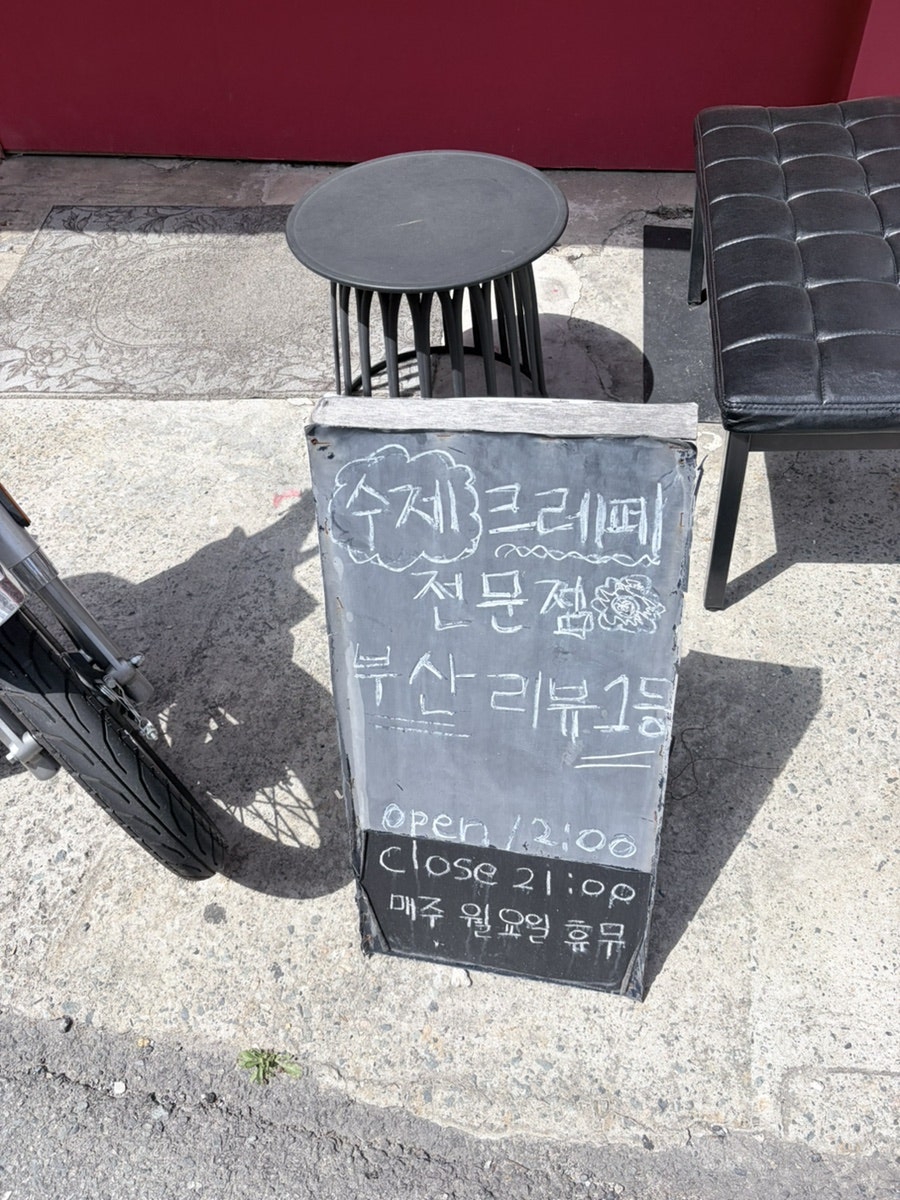 수제 크레페
전문점
부산 리뷰1등
open 12:00
Close 21:00
매주 월요일 휴무